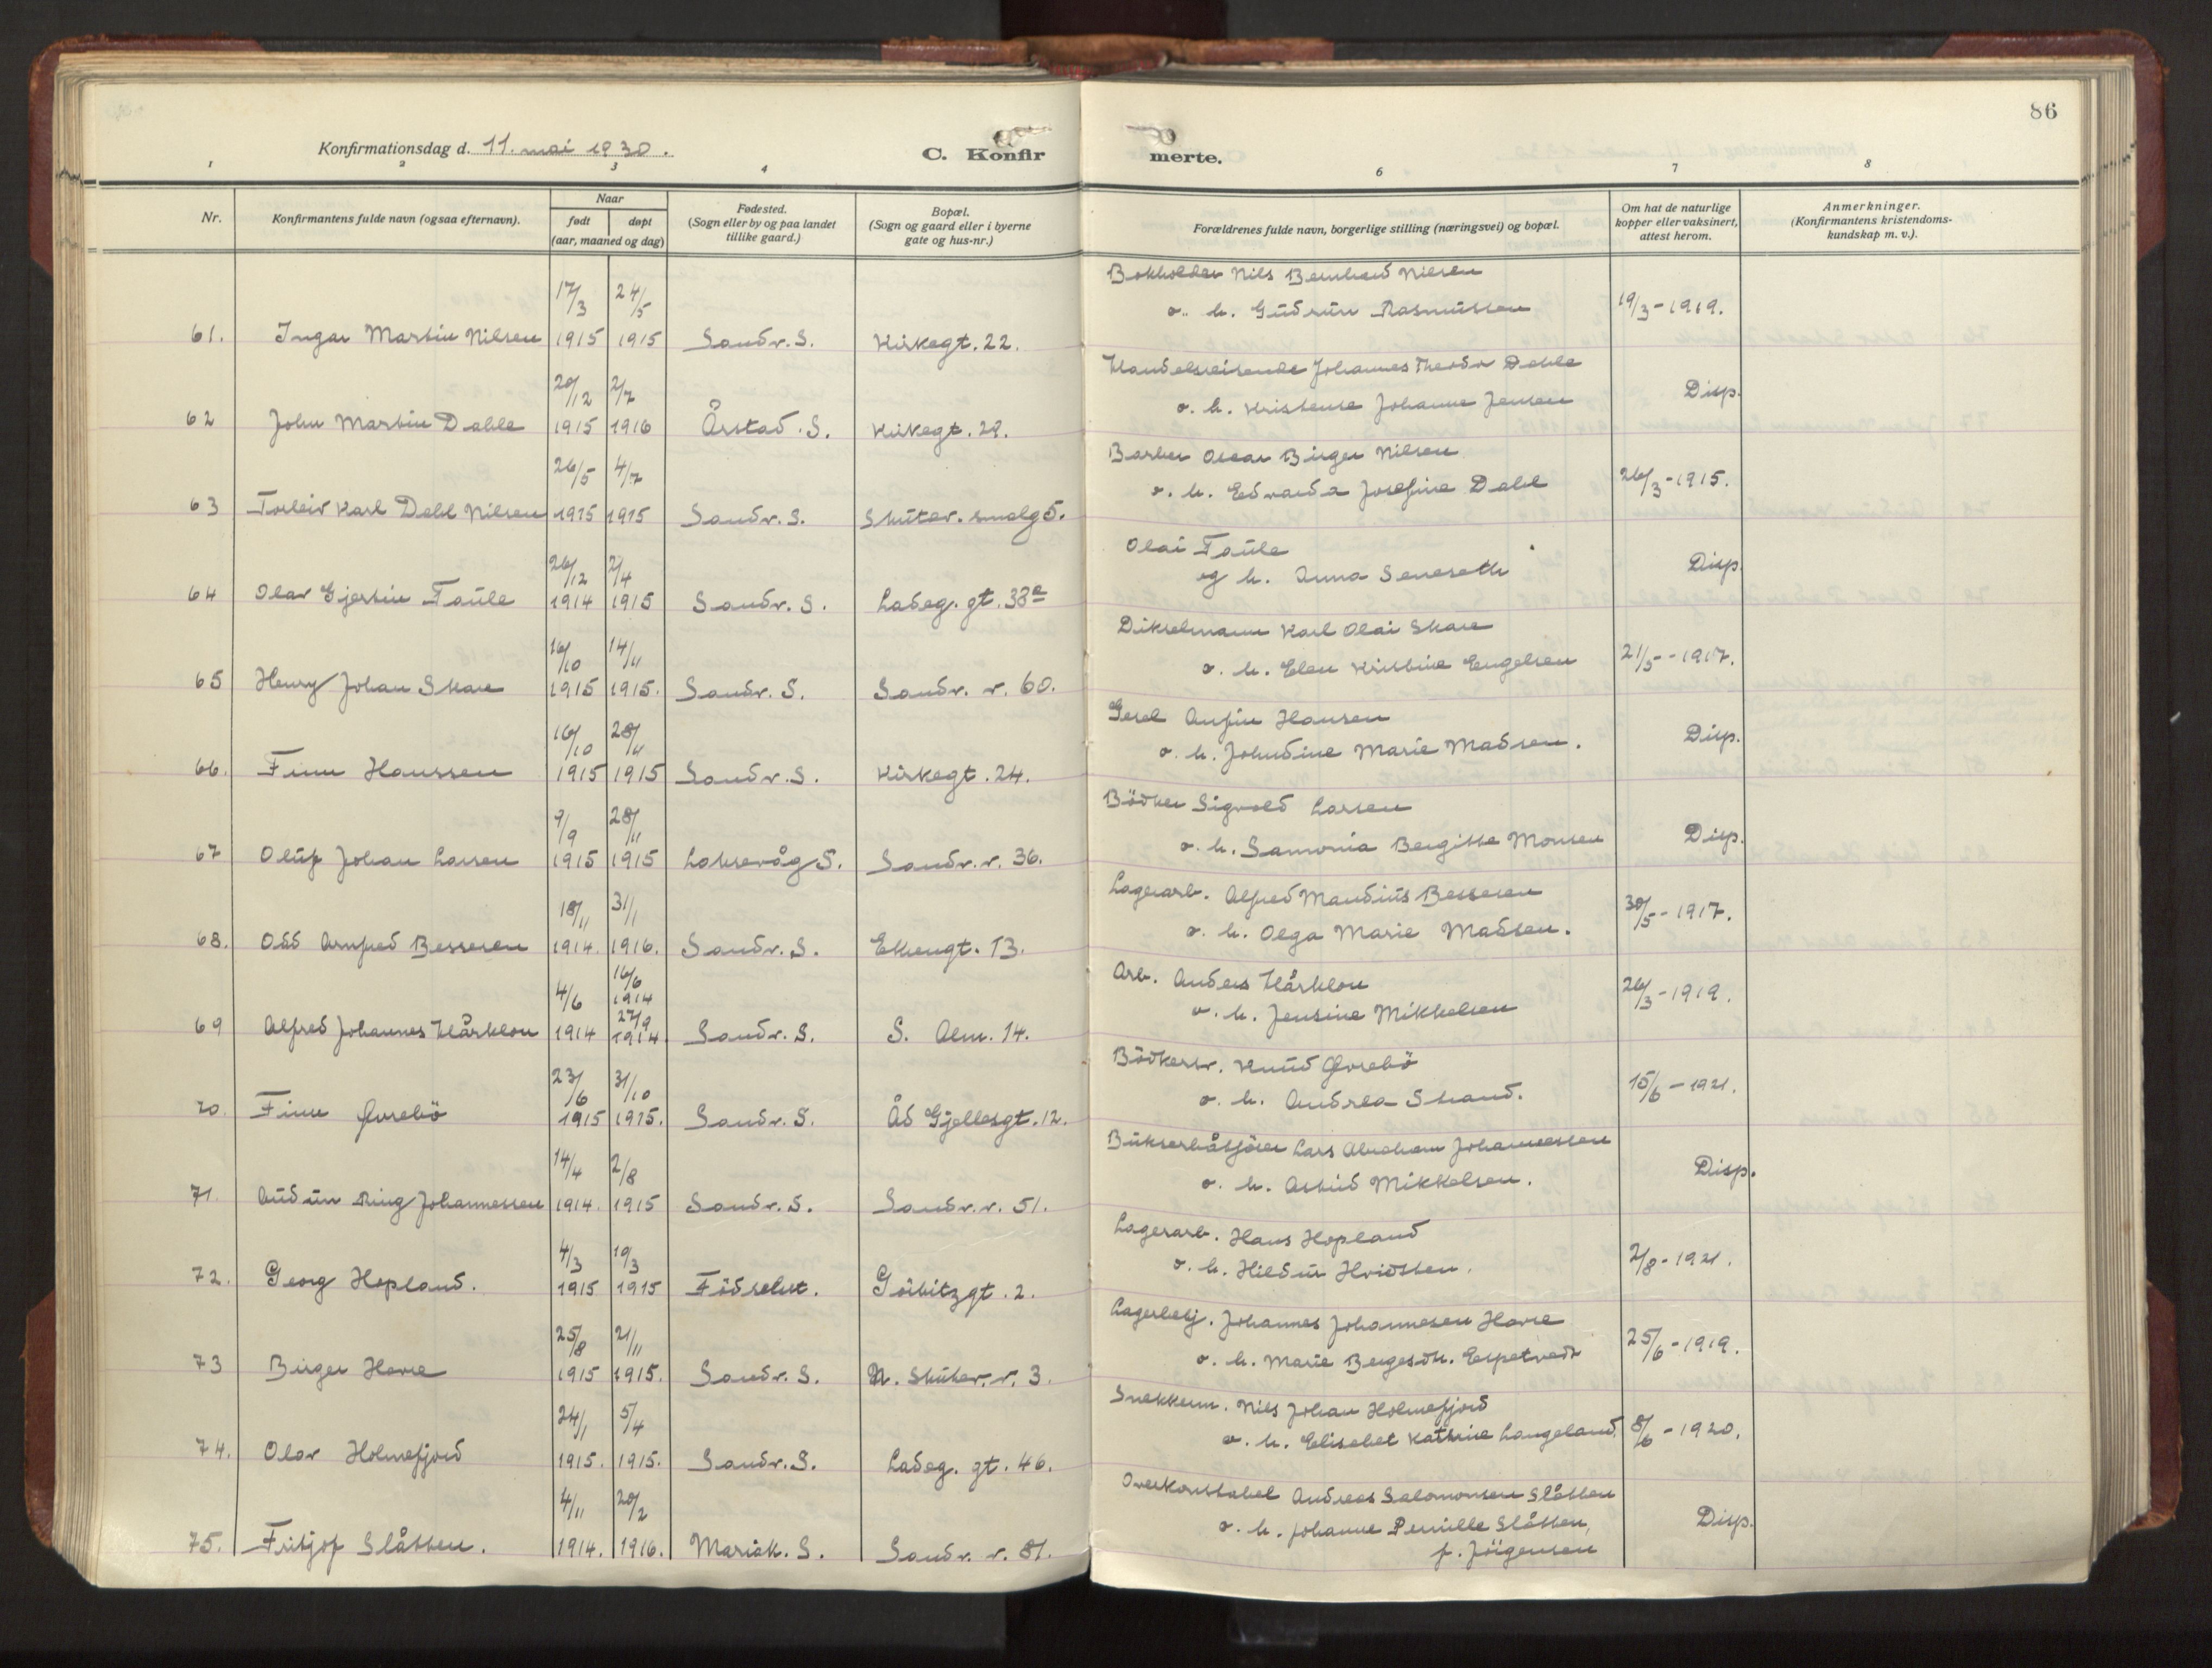 86
Konfirmationsdag d. 11. mai 1930.
C. Konfir merte.
1 2 3 4 6 7 8
Nr.
Konfirmantens fulde navn (ogsaa efternavn).
Naar
født
døpt
(aar, maaned og dag)
Fødested.
(Sogn eller by og paa landet
tillike gaard.)
Bopæl.
(Sogn og gaard eller i byerne
gate og hus-nr.)
Forældrenes fulde navn, borgerlige stilling (næringsvei) og bopæl.
Om hat de naturlige
kopper eller vaksinert,
attest herom.
Anmerkninger.
(Konfirmantens kristendoms-
kundskap m. v.).
17/3 24/5 Bokholder Nils Bernhard Nilsen
o. h. Gudrun Rasmussen 19/3-1919.
61. Ingar Martin Nilsen 1915 1915 Sandv. S. Kirkegt. 22.
20/12 2/7 Handelsreisende Johannes Theodor Dahle
o. h. Kristense Johanne Jensen Disp.
62 John Martin Dahle 1915 1916 Årstad. S. Kirkegt. 28.
26/5 4/7 Barber Oscar Birger Nilsen
o. h. Edvarda Josefine Dahl 26/3-1915.
63 Torleiv Karl Dahl Nilsen 1915 1915 Sandv. S. Skutev. smalg 5.
26/12 2/4 Olai Taule
og h. Anna Seneseth Disp.
64 Olav Gjertin Taule 1914 1915 Sandv. S. Ladeg. gt. 38a
16/10 14/11 Dikselmann Karl Olai Skare
o. h. Elen Kristine Engelsen 21/5-1917.
65 Henry Johan Skare 1915 1915. Sandv. S. Sandv. v. 60.
16/10 28/11 Gesel Anfin Hansen
o. h. Johndine Marie Madsen. Disp.
66. Finn Hanssen 1915 1915 Sandv. S. Kirkegt. 24.
9/9 28/11 Bödker Sigvald Larsen
o. h. Samonia Bergitte Monsen Disp.
67 Oluf Johan Larsen 1915 1915 Laksevåg S. Sandv. v. 36.
18/11 31/1 Lagerarb. Alfred Mandius Bessesen
o. h. Olga Marie Madsen. 30/5-1917.
68. Odd Arnfred Bessesen 1914. 1916. Sandv. S. Ekengt. 13.
4/6 16/6 1914 Arb. Anders Hårklou
27/9 o. h. Jensine Mikkelsen 26/3-1919.
69 Alfred Johannes Hårklou 1914 1914. Sandv. S. S. Alm. 14.
23/6 31/10 Bödkersv. Knud Øvrebö
o. h. Andrea Strand. 15/6-1921.
70. Finn Øvrebö 1915 1915. Sandv. S. Åd Gjellesgt. 12.
14/4 2/8 Bukserbåtförer Lars Abraham Johannessen
o. h. Astrid Mikkelsen. Disp.
71. Audun Ring Johannessen 1914. 1915 Sandv. S. Sandv. v. 51.
4/3 19/3 Lagerarb. Hans Hopland
o. h. Hildur Hvidsten. 2/8-1921.
72. Georg Hopland. 1915 1915 Födselst. Görbitzgt. 2.
25/8 21/11 Lagerbetj. Johannes Johannesen Havre
o. h. Marie Bergesdtr. Espetvedt 25/6-1919.
73 Birger Havre 1915 1915. Sandv. S. N. Skutev. v. 3.
24/1 5/4 Snekkerm. Nils Johan Holmefjord
o. h. Elisabet Kathrine Langeland. 8/6-1920.
74. Olav Holmefjord 1915. 1915. Sandv. S. Ladeg. gt. 46.
4/11 20/2 Overkonstabel Andreas Salomonsen Slåtten
o. h. Johanne Pernille Slåtten, Disp.
f. Jörgensen
75. Fritjof Slåtten. 1914. 1916. Mariak. S. Sandv. v. 81.